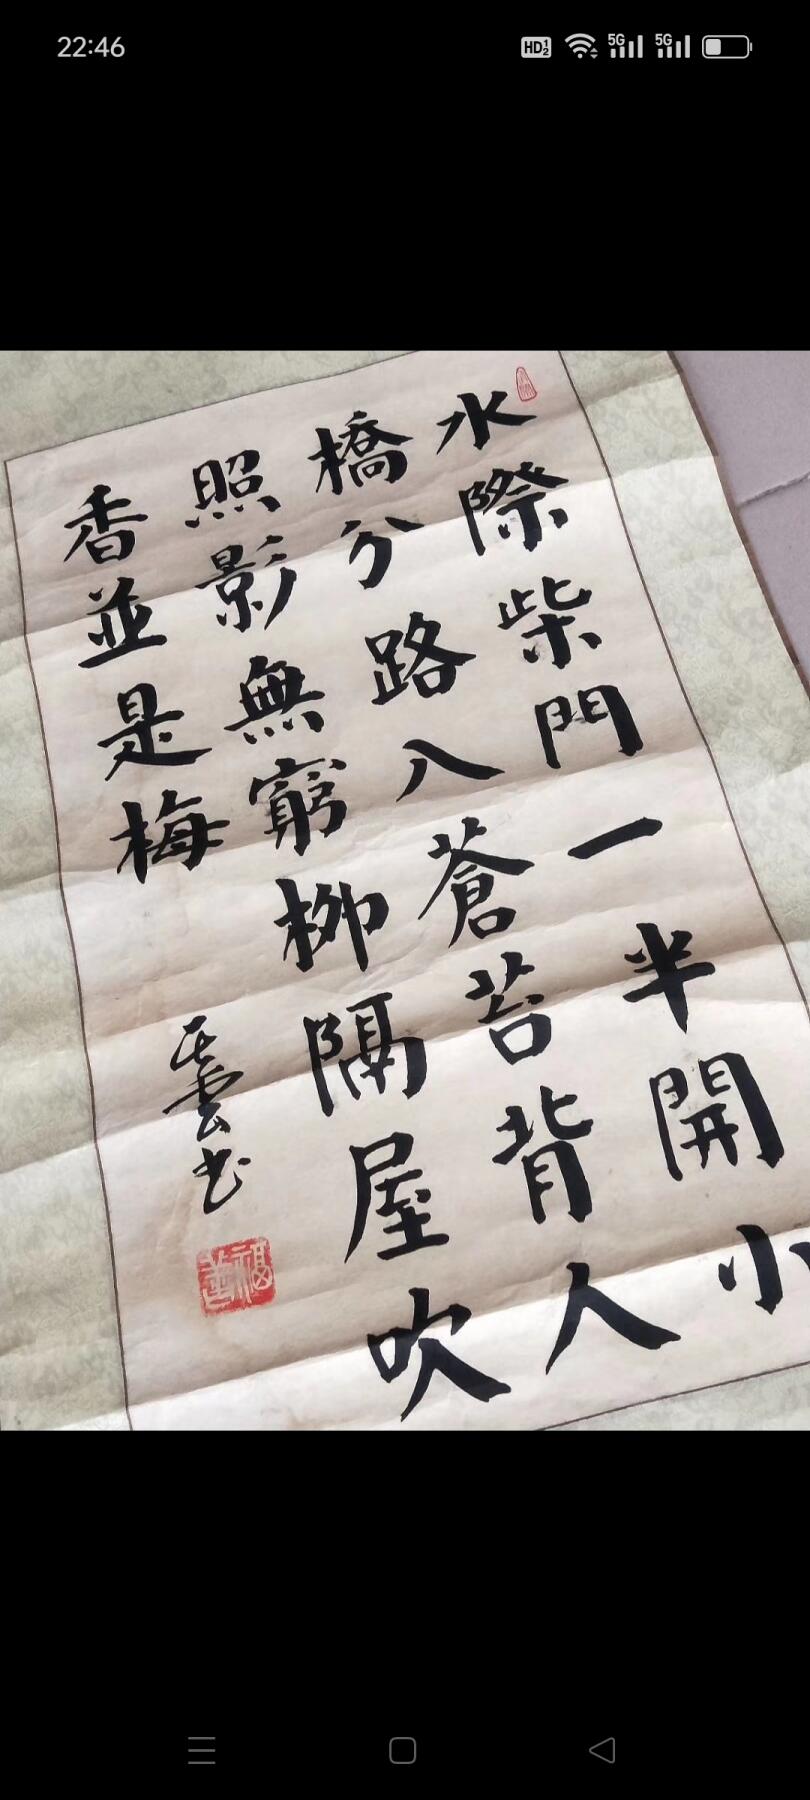 22:46
水際柴門一半開小
橋分路入蒼苔背人
照影無窮柳隔屋吹
香並是梅
雲書